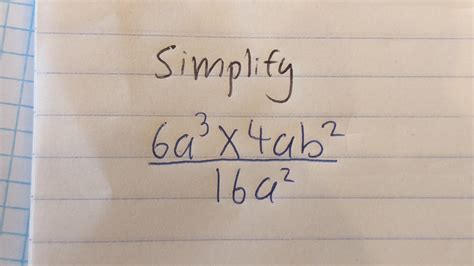 Simplify
6a³ × 4ab²
16a²